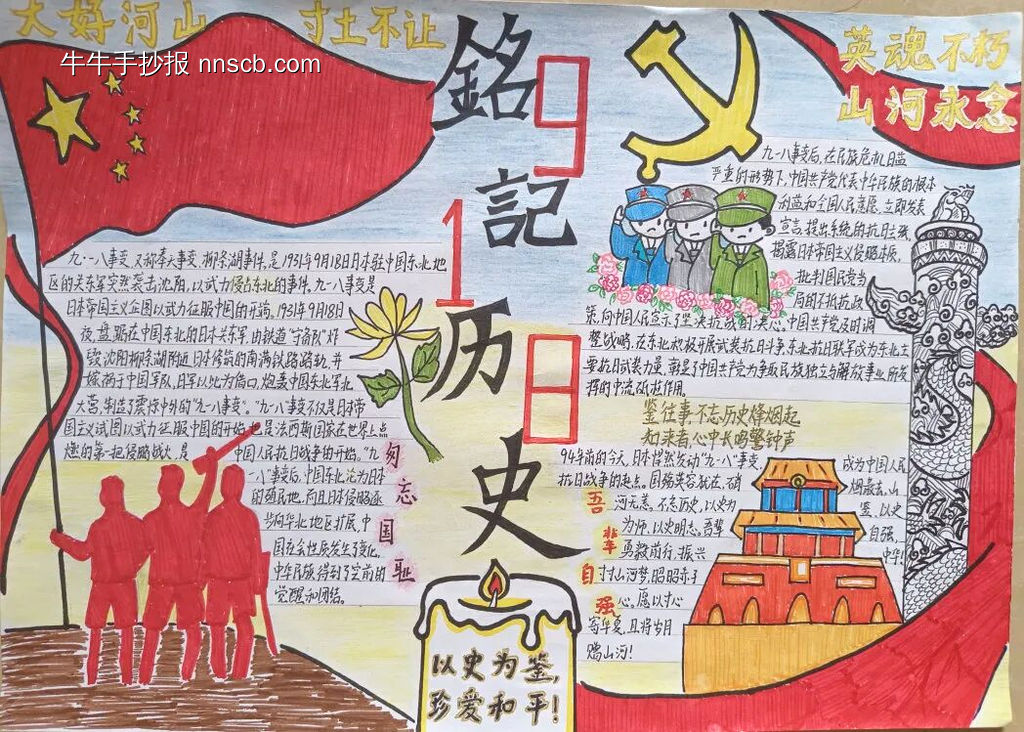 大好河山 寸土不让
牛牛手抄报 nnscb.com
銘記历史
918
英魂不朽
山河永念
九·一八事变 又称奉天事变、柳条湖事件,是1931年9月18日日本驻中国东北地
区的关东军突然袭击沈阳,以武力侵占东北的事件。九一八事变是
日本帝国主义企图以武力征服中国的开端,1931年9月18日
夜,盘踞在中国东北的日本关东军,由铁道"守备队"炸
毁沈阳柳条湖附近日本修筑的南满铁路路轨,并
嫁祸于中国军队,日军以此为借口,炮轰中国东北军北
大营,制造了震惊中外的"九一八事变"。"九一八事变不仅是日本帝
国主义试图以武力征服中国的开始,也是法西斯国家在世界上点
燃的第一把侵略战火,是 中国人民抗日战争的开始。"九
一八"事变后,中国东北沦为日本
的殖民地,而且日本侵略逐
步向华北地区扩展,中
国社会性质发生了变化,
中华民族得到了空前的
觉醒和团结。
勿忘国耻
九一八事变后,在民族危机日益
严重的形势下,中国共产党代表中华民族的根本
利益和全国人民意愿,立即发表
宣言,提出系统的抗日主张,
揭露日本帝国主义侵略本质,
批判国民党当
局的不抵抗政
策,向中国人民宣示了坚决抗战的决心。中国共产党及时调
整战略,在东北积极开展武装抗日斗争,东北抗日联军成为东北主
要抗日武装力量,彰显了中国共产党为争取民族独立与解放事业所发
挥的中流砥柱作用。
鉴往事,不忘历史烽烟起
知来者,心中长鸣警钟声
94年前的今天,日本悍然发动"九一八"事变, 成为中国人民
抗日战争的起点。国殇英容犹在,硝 烟散去,山
河无恙,不忘历史,以史为 鉴,以史
为师,以史明志。吾辈 自强,
勇毅前行,振兴 中华!
寸寸山河梦,昭昭赤子
心。愿以寸心
寄华夏,且将岁月
赠山河!
吾辈自强
以史为鉴,
珍爱和平!